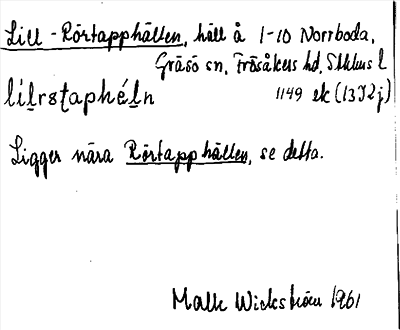 Lill-Rörtapphällen, häll å 1-10 Norrboda,
Gräsö sn, Frösåkers hd, Sthlms l
lilrstaphéln 1149 ek (13I2j)
Ligger nära Rörtapphällen, se detta.
Malte Wickström 1961